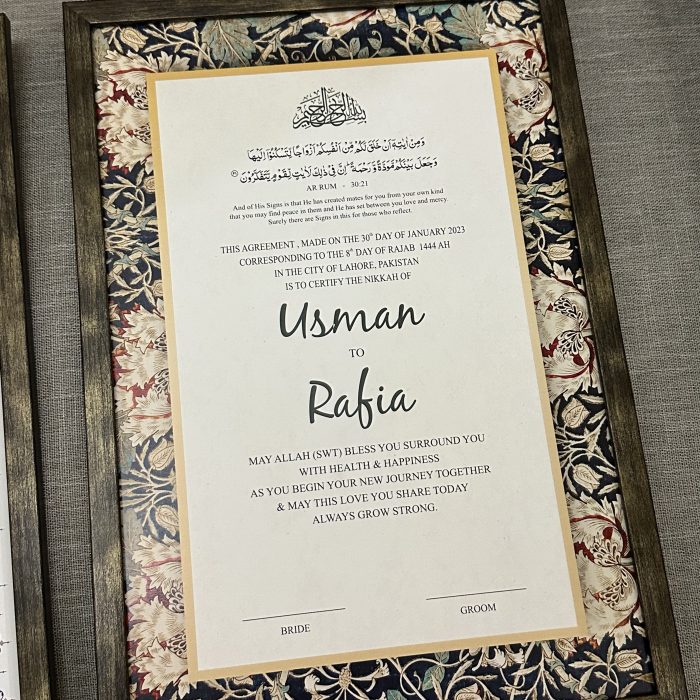 بسم الله الرحمن الرحيم
وَمِنْ اٰيٰتِهٖٓ اَنْ خَلَقَ لَكُمْ مِّنْ اَنْفُسِكُمْ اَزْوَاجًا لِّتَسْكُنُوْٓا اِلَيْهَا
وَجَعَلَ بَيْنَكُمْ مَّوَدَّةً وَّرَحْمَةً ؕ اِنَّ فِيْ ذٰلِكَ لَاٰيٰتٍ لِّقَوْمٍ يَّتَفَكَّرُوْنَ ﴿۲۱﴾
AR RUM - 30:21
And of His Signs is that He has created mates for you from your own kind
that you may find peace in them and He has set between you love and mercy.
Surely there are Signs in this for those who reflect.
THIS AGREEMENT , MADE ON THE 30th DAY OF JANUARY 2023
CORRESPONDING TO THE 8th DAY OF RAJAB 1444 AH
IN THE CITY OF LAHORE, PAKISTAN
IS TO CERTIFY THE NIKKAH OF
Usman
TO
Rafia
MAY ALLAH (SWT) BLESS YOU SURROUND YOU
WITH HEALTH & HAPPINESS
AS YOU BEGIN YOUR NEW JOURNEY TOGETHER
& MAY THIS LOVE YOU SHARE TODAY
ALWAYS GROW STRONG.
BRIDE
GROOM